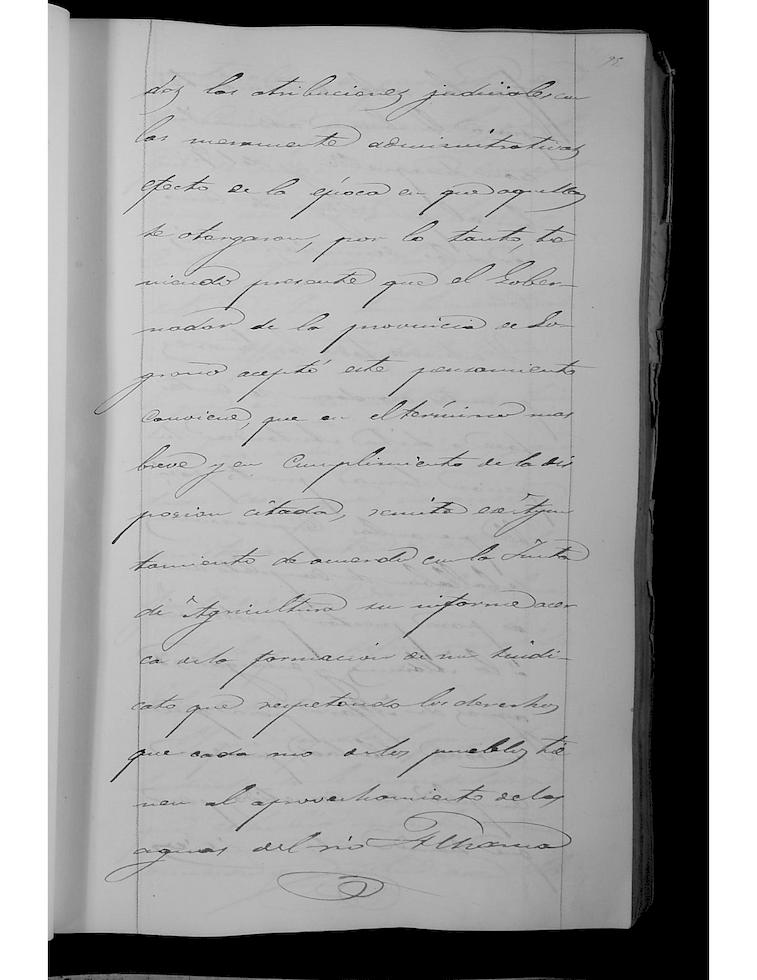 dos las atribuciones judiciales con
las meramente administrativas
efecto de la época en que aquellas
se otorgaron, por lo tanto, te
niendo presente que el Gober-
nador de la provincia de Lo-
groño aceptó este pensamiento
conviene, que en el término mas
breve y en cumplimiento de la dis
posicion citada, remita ese Ayun
tamiento de acuerdo con la Junta
de Agricultura su informe acer
ca de la formacion de un sindi-
cato que respetando los derechos
que cada uno de los pueblos tie
nen al aprovechamiento de las
aguas del rio Alhama